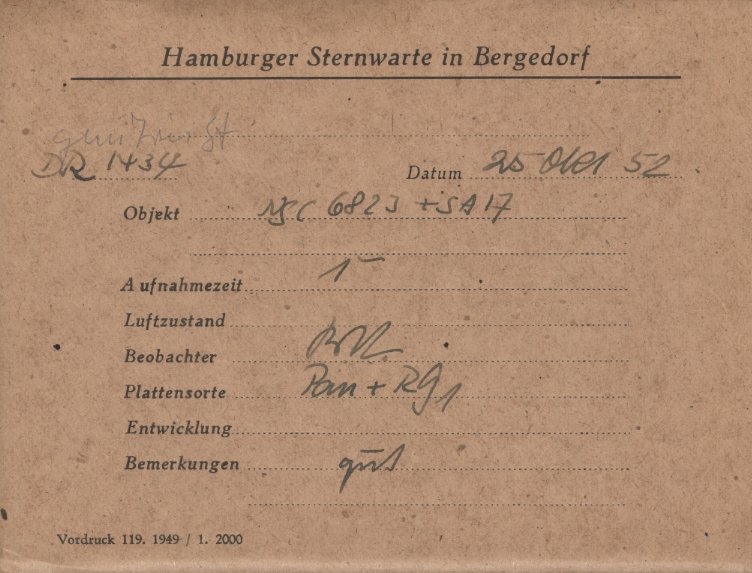 Hamburger Sternwarte in Bergedorf
DR 1434
Datum 25 Okt 52
Objekt NGC 6823 + SA 17
Aufnahmezeit 1
Luftzustand
Beobachter
Plattensorte Pan + RG1
Entwicklung
Bemerkungen gut
Vordruck 119. 1949 / 1. 2000